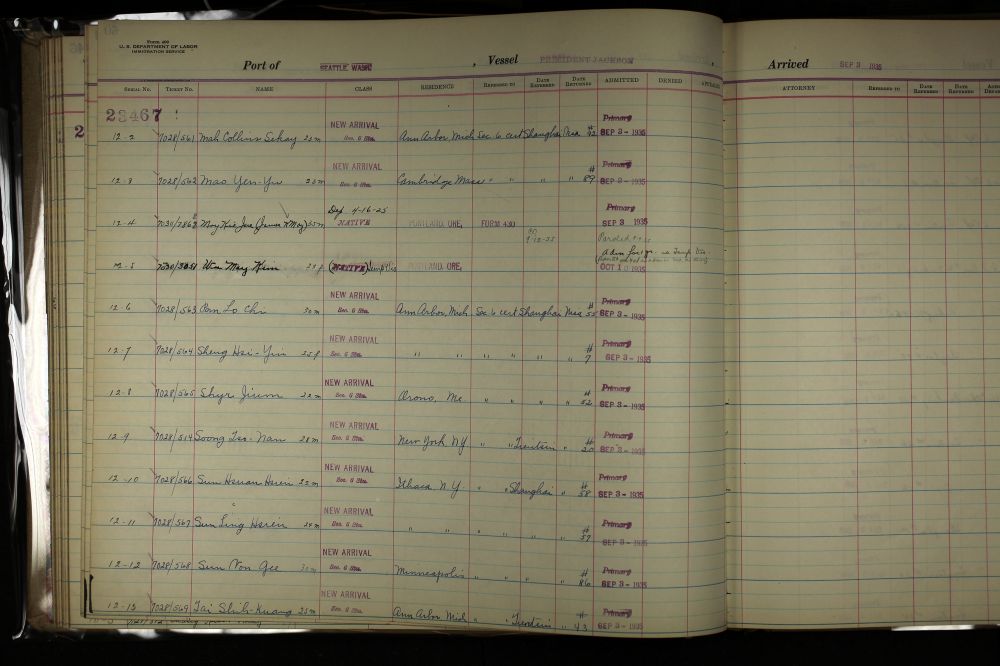 Form 400
U. S. DEPARTMENT OF LABOR
IMMIGRATION SERVICE
Port of SEATTLE, WASH. , Vessel PRESIDENT JACKSON , Arrived SEP 3 1935
SERIAL NO. TICKET NO. NAME CLASS RESIDENCE REFERRED TO DATE REFERRED DATE RETURNED ADMITTED DENIED APPEALED ATTORNEY REFERRED TO DATE REFERRED DATE REFERRED
23467
12-2 7028/561 Mah Collins Sekay 23m NEW ARRIVAL Sec. 6 Stu. Ann Arbor, Mich Sec 6 cert Shanghai Mea #92 Primary SEP 3 - 1935
12-3 7028/562 Mao Yen-Yu 23m NEW ARRIVAL Sec. 6 Stu. Cambridge Mass " " " " #89 Primary SEP 3 - 1935
12-4 Moy Kie Jue (James K Moy) Dep 4-16-25 NATIVE PORTLAND, ORE. FORM 430 Primary SEP 3 1935
12-5 Wm May Kim 29 f (NATIVE) PORTLAND, ORE. 9-12-35 Paroled OCT 10 1935
12-6 7028/563 Pan Lo Chi 30m NEW ARRIVAL Sec. 6 Stu. Ann Arbor, Mich Sec 6 cert Shanghai Mea #55 Primary SEP 3 - 1935
12-7 7028/564 Sheng Hsi-Yin 25 f NEW ARRIVAL Sec. 6 Stu. " " " " " " #7 Primary SEP 3 - 1935
12-8 7028/565 Shyr Jium 22m NEW ARRIVAL Sec. 6 Stu. Orono, Me. " " " " #52 Primary SEP 3 - 1935
12-9 7028/514 Soong Tso-Nan 28m NEW ARRIVAL Sec. 6 Stu. New York NY " " Tientsin " #20 Primary SEP 3 - 1935
12-10 7028/566 Sun Hsuan Hsein 22m NEW ARRIVAL Sec. 6 Stu. Ithaca N.Y. " " Shanghai " #58 Primary SEP 3 - 1935
12-11 7028/567 Sun Ling Hsein 24m NEW ARRIVAL Sec. 6 Stu. " " " " " " #57 Primary SEP 3 - 1935
12-12 7028/568 Sun Von Gee 30m NEW ARRIVAL Sec. 6 Stu. Minneapolis " " " " #86 Primary SEP 3 - 1935
12-13 7028/569 Tai Shih-Kuang 25m NEW ARRIVAL Sec. 6 Stu. Ann Arbor Mich " " Tientsin " #43 Primary SEP 3 - 1935